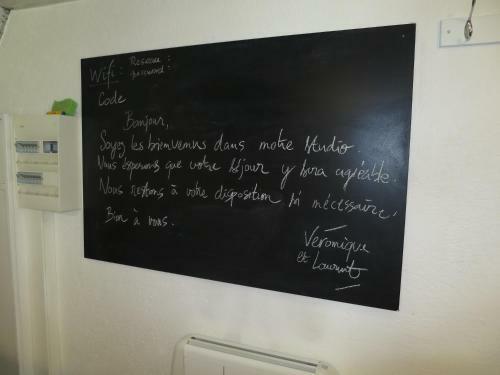 Wifi: Reseau:
password:
Code
Bonjour,
Soyez les bienvenus dans notre studio.
Nous esperons que votre séjour y sera agréable.
Nous restons à votre disposition si nécessaire.
Bien à vous.
Véronique
et Laurent